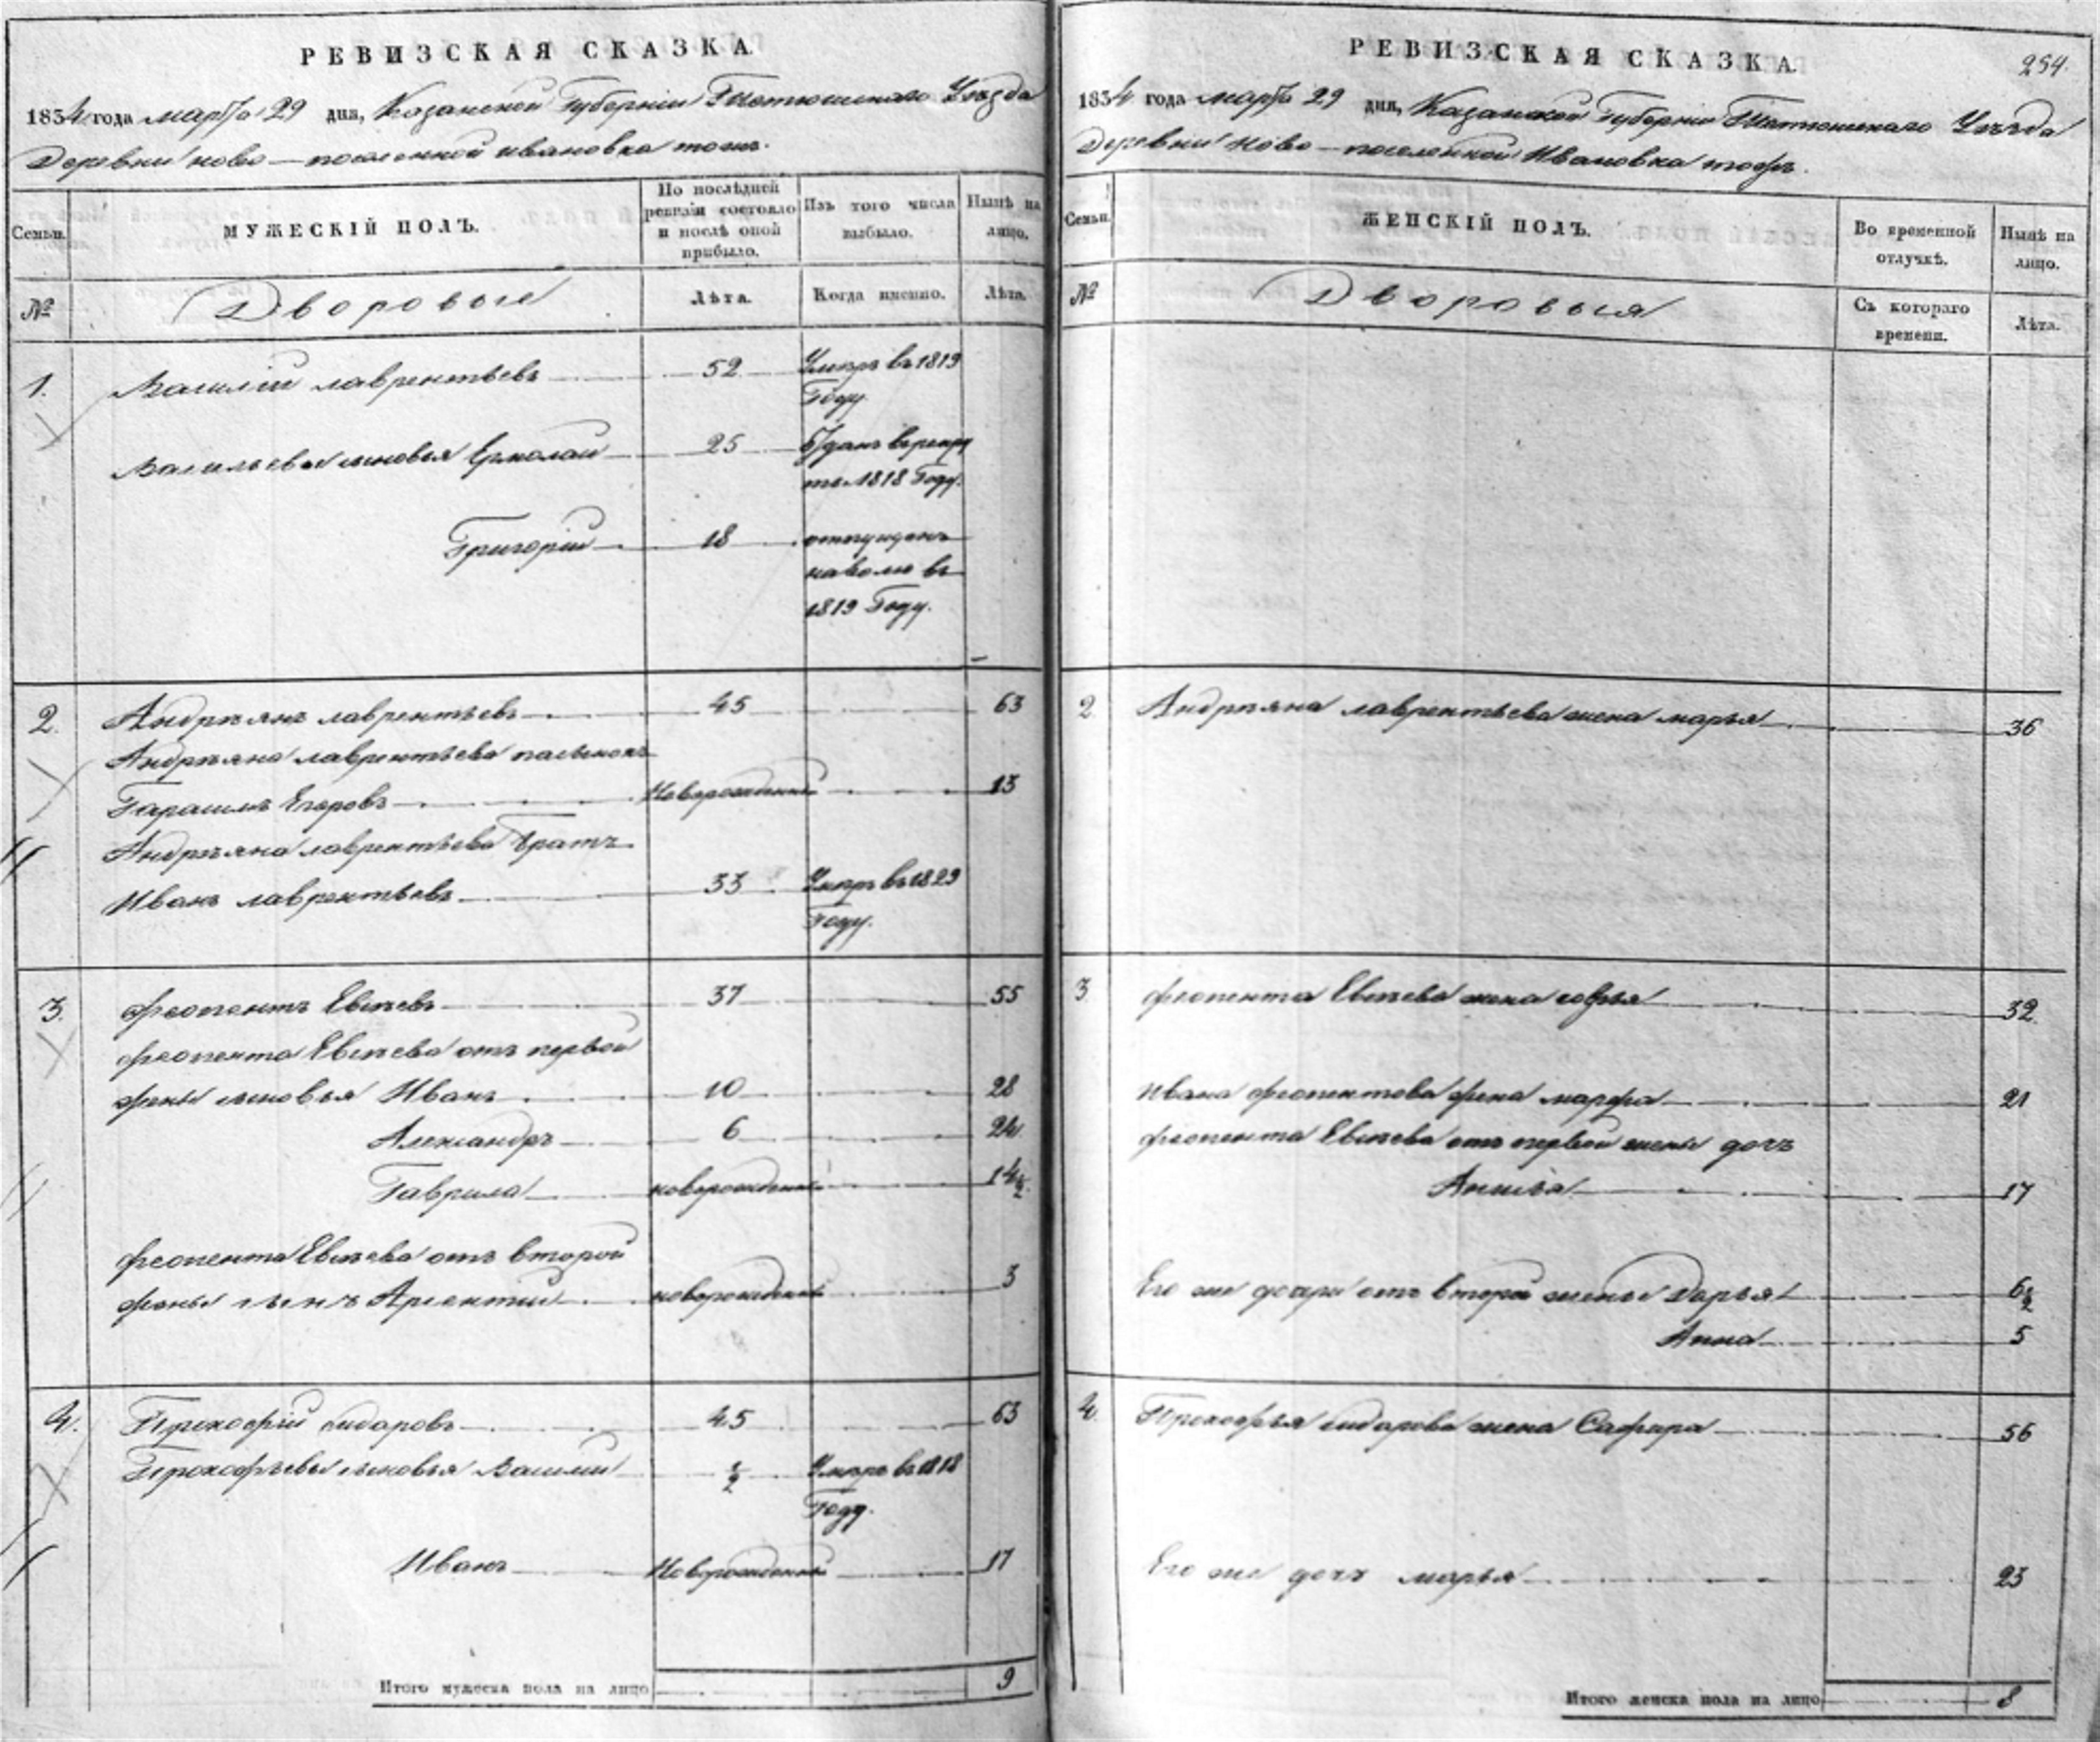 РЕВИЗСКАЯ СКАЗКА.
1834 года марта 29 дня, Казанской Губернии Тетюшинскаго Уезда
Деревни ново-поселенной ивановка тожъ.
Семьи.
МУЖЕСКІЙ ПОЛЪ.
По послѣдней ревизіи состояло и послѣ оной прибыло.
Изъ того числа выбыло.
Нынѣ на лицо.
№
Дворовые
Лѣта.
Когда именно.
Лѣта.
1. Василій лаврентьевъ 52 Умеръ въ 1819 Году.
Васильевы сыновья Ермолай 25 Отданъ врекруты 1818 Году.
Григорій 18 отпущенъ наволю въ 1819 Году.
2. Андреянъ лаврентьевъ 45 63
Андреяна лаврентьева пасынокъ
Гарасимъ Егоровъ Новорожденный 13
Андреяна лаврентьева братъ
Иванъ лаврентьевъ 33 Умеръ въ 1829 Году.
3. Феопентъ Евсѣевъ 37 55
феопента Евсѣева отъ первой
жены сыновья Иванъ 10 28
Александръ 6 24
Гаврила новорожденный 14½
феопента Евсѣева отъ второй
жены сынъ Арсентий новорожденный 3
4. Прокофій сидаровъ 45 63
Прокофьевы сыновья Василий ½ Умеръ въ 1818 Году.
Иванъ Новорожденный 17
Итого мужеска пола на лицо 9
РЕВИЗСКАЯ СКАЗКА.
254.
1834 года марта 29 дня, Казанской Губернии Тетюшинскаго Уезда
Деревни Ново-поселенной Ивановка тожъ.
Семьи.
ЖЕНСКІЙ ПОЛЪ.
Во временной отлучкѣ.
Нынѣ на лицо.
№
Дворовыя
Съ котораго времени.
Лѣта.
2. Андреяна лаврентьева жена марья 36
3. феопента Евсѣева жена софья 32
Ивана феопентова жена марфа 21
феопента Евсѣева отъ первой жены дочь
Анисья 17
Его же дочери отъ второй жены Дарья 6½
Анна 5
4. Прокофья сидарова жена Сафира 56
Его же дочь марья 23
Итого женска пола на лицо 8